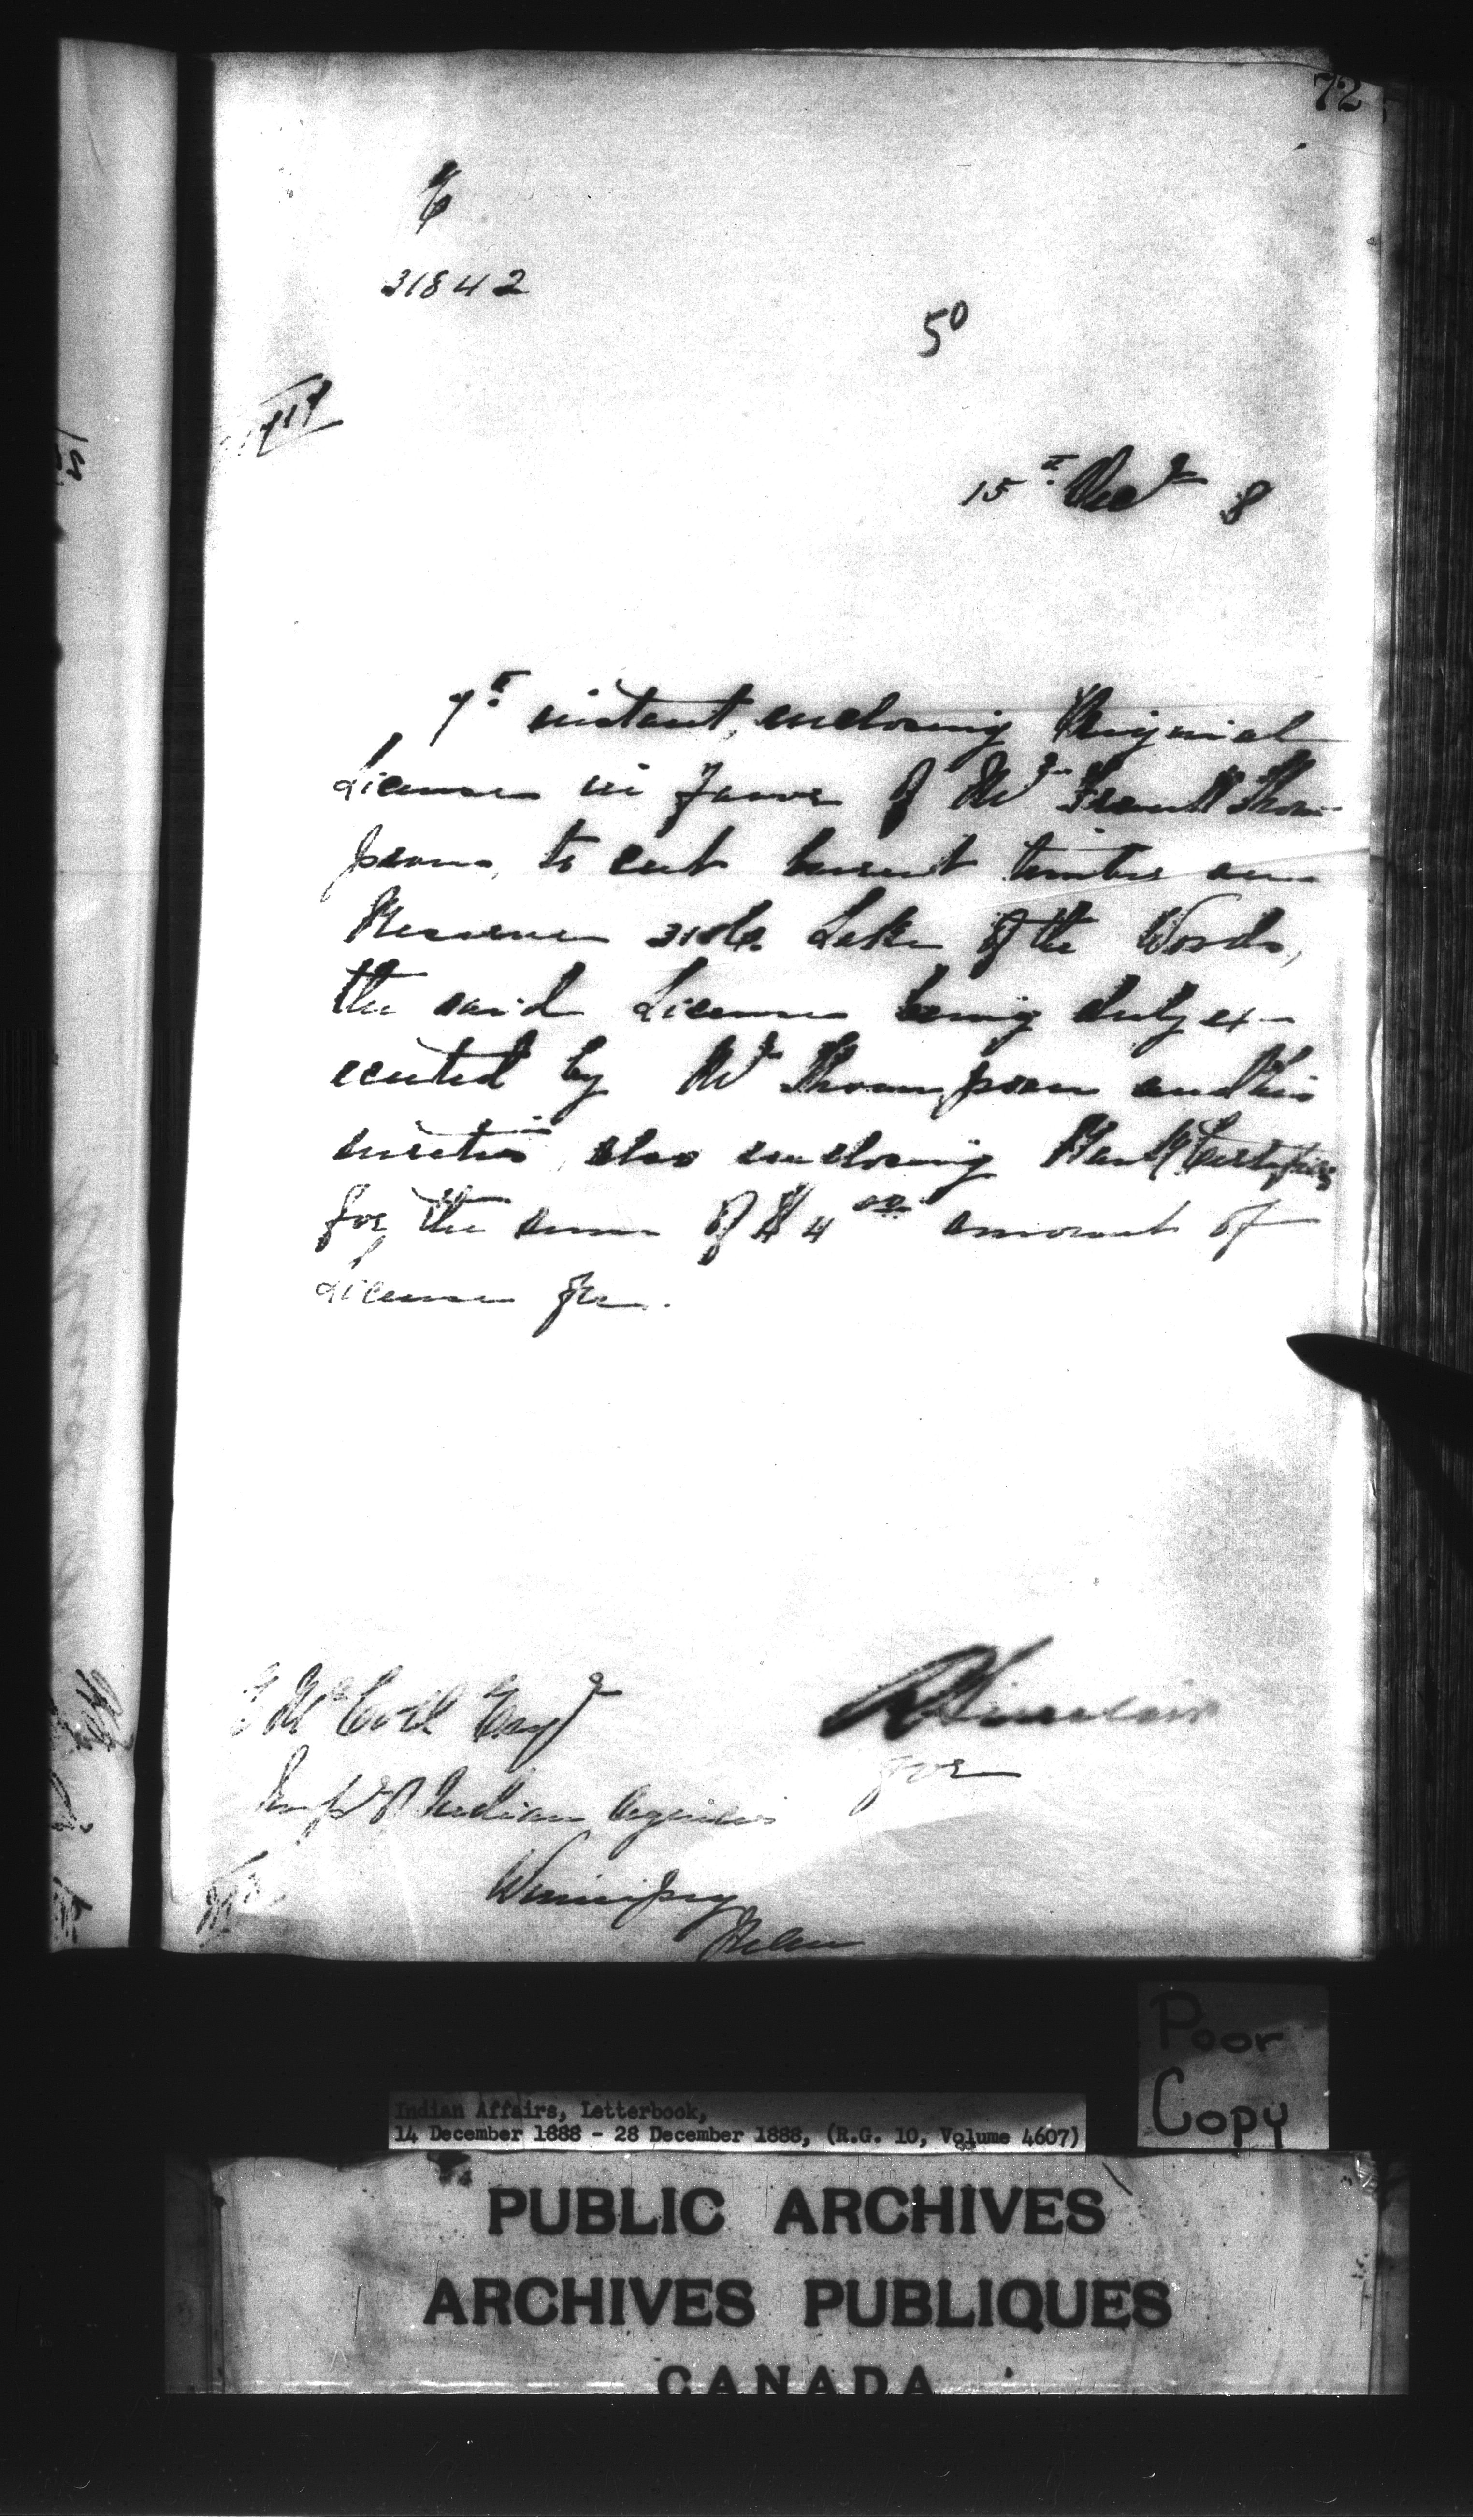 72
31842
50
15th Decr 8
7th instant, enclosing Original
License in favor of Mr Frank Thom-
pson, to cut burnt timber on
Reserve Lake of the Woods,
the said License being duly ex-
ecuted by Mr Thompson and his
sureties, also enclosing Bank Certificate
for the sum of $4.00 amount of
License fee.
E McColl Esqr
RSinclair
for
Inspr of Indian Agencies
Winnipeg
Man
Poor
Copy
Indian Affairs, Letterbook,
14 December 1888 - 28 December 1888, (R.G. 10, Volume 4607)
PUBLIC ARCHIVES
ARCHIVES PUBLIQUES
CANADA